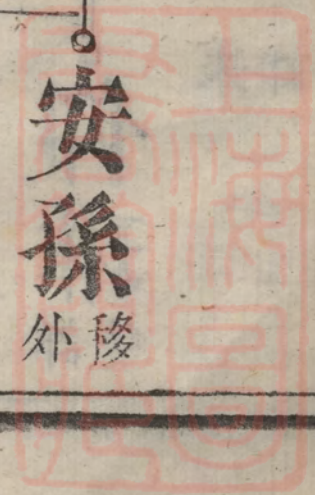 安孫
移外